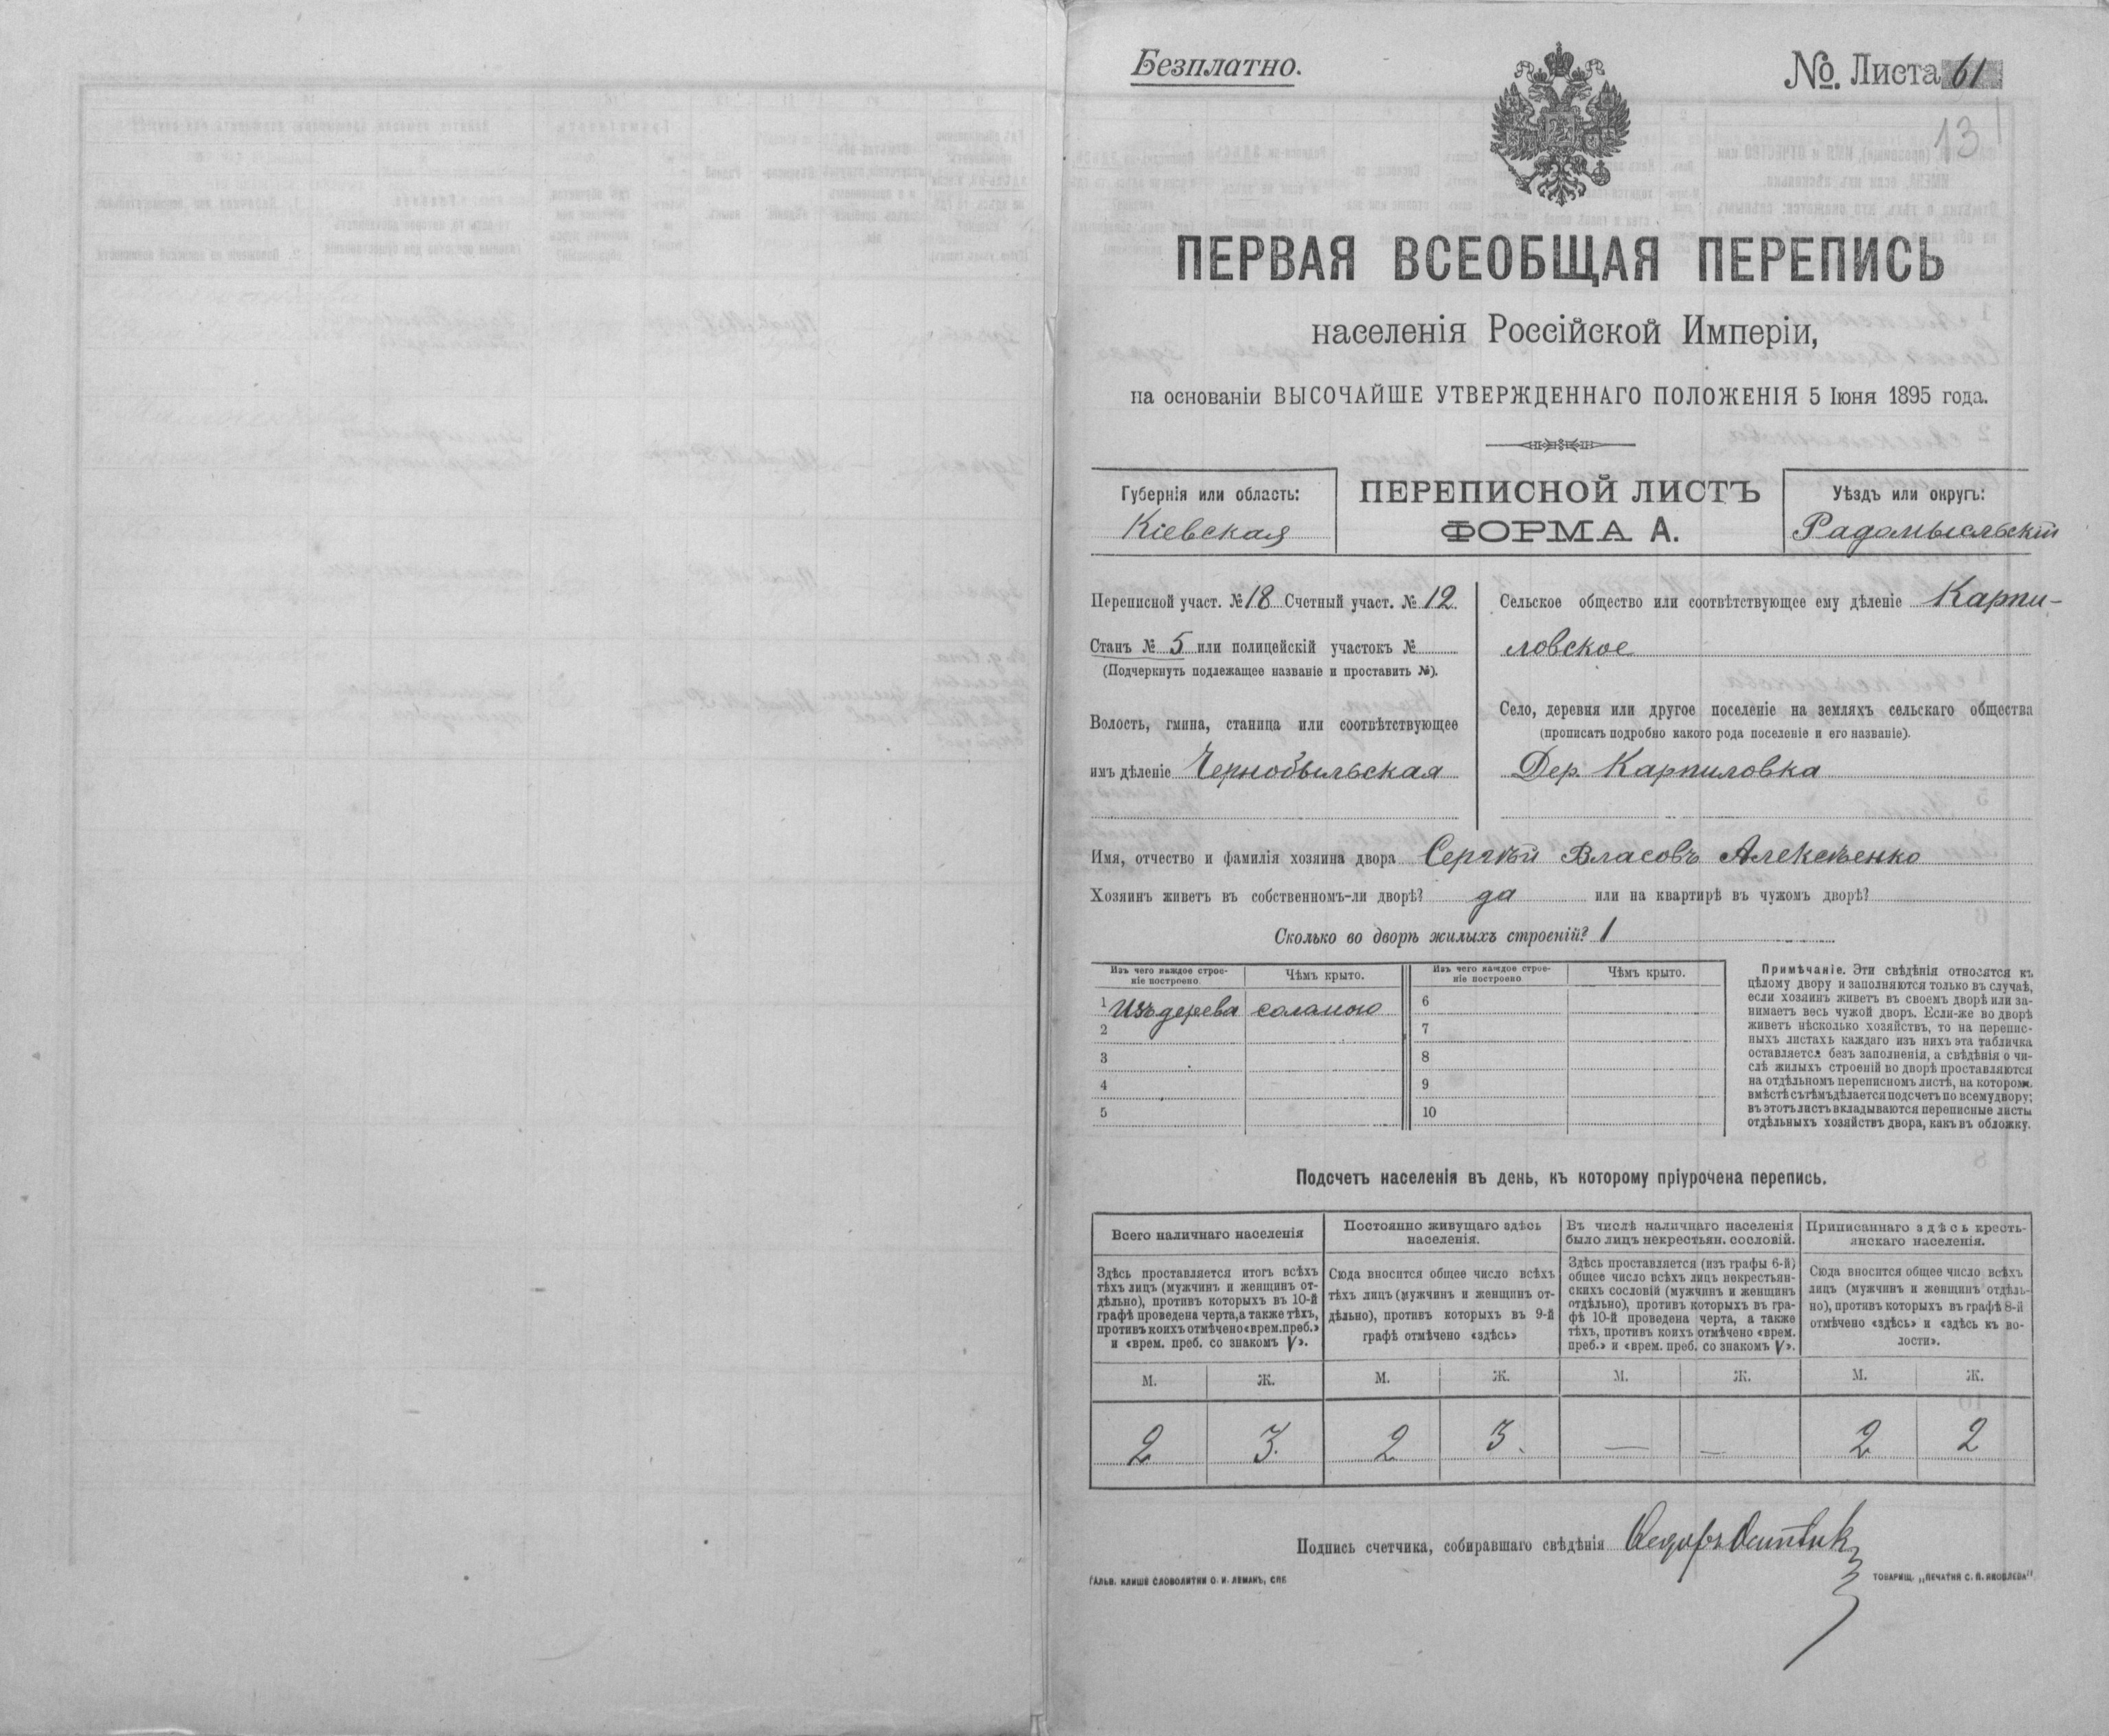 Безплатно.
№. Листа 61
13
ПЕРВАЯ ВСЕОБЩАЯ ПЕРЕПИСЬ
населенія Россійской Имперіи,
на основаніи ВЫСОЧАЙШЕ УТВЕРЖДЕННАГО ПОЛОЖЕНІЯ 5 Іюня 1895 года.
Губернія или область:
Кіевская
ПЕРЕПИСНОЙ ЛИСТЪ
ФОРМА А.
Уѣздъ или округъ:
Радомысльскій
Переписной участ. № 18 Счетный участ. № 12
Станъ № 5 или полицейскій участокъ №
(Подчеркнуть подлежащее названіе и проставить №).
Волость, гмина, станица или соотвѣтствующее
имъ дѣленіе Чернобыльская
Сельское общество или соотвѣтствующее ему дѣленіе Карпи-
ловское
Село, деревня или другое поселеніе на земляхъ сельскаго общества
(прописать подробно какого рода поселеніе и его названіе).
Дер. Карпиловка
Имя, отчество и фамилія хозяина двора Сергѣй Власовъ Алексѣенко
Хозяинъ живетъ въ собственномъ-ли дворѣ? да или на квартирѣ въ чужомъ дворѣ?
Сколько во дворѣ жилыхъ строеній? 1
Изъ чего каждое строе-
ніе построено.
Чѣмъ крыто.
Изъ чего каждое строе-
ніе построено
Чѣмъ крыто.
1 Изъ дерева соламою 6
2 7
3 8
4 9
5 10
Примѣчаніе. Эти свѣдѣнія относятся къ
цѣлому двору и заполняются только въ случаѣ,
если хозяинъ живетъ въ своемъ дворѣ или за-
нимаетъ весь чужой дворъ. Если-же во дворѣ
живетъ нѣсколько хозяйствъ, то на перепис-
ныхъ листахъ каждаго изъ нихъ эта табличка
оставляется безъ заполненія, а свѣдѣнія о чи-
слѣ жилыхъ строеній во дворѣ проставляются
на отдѣльномъ переписномъ листѣ, на которомъ
вмѣстѣ съ тѣмъ дѣлается подсчетъ по всему двору;
въ этотъ листъ вкладываются переписные листы
отдѣльныхъ хозяйствъ двора, какъ въ обложку.
Подсчетъ населенія въ день, къ которому пріурочена перепись.
Всего наличнаго населенія
Здѣсь проставляется итогъ всѣхъ
тѣхъ лицъ (мужчинъ и женщинъ от-
дѣльно), противъ которыхъ въ 10-й
графѣ проведена черта, а также тѣхъ,
противъ коихъ отмѣчено «врем. преб.»
и «врем. преб. со знакомъ V».
Постоянно живущаго здѣсь
населенія.
Сюда вносится общее число всѣхъ
тѣхъ лицъ (мужчинъ и женщинъ от-
дѣльно), противъ которыхъ въ 9-й
графѣ отмѣчено «здѣсь»
Въ числѣ наличнаго населенія
было лицъ некрестьян. сословій.
Здѣсь проставляется (изъ графы 6-й)
общее число всѣхъ лицъ некрестьян-
скихъ сословій (мужчинъ и женщинъ
отдѣльно), противъ которыхъ въ гра-
фѣ 10-й проведена черта, а также
тѣхъ, противъ коихъ отмѣчено «врем.
преб.» и «врем. преб. со знакомъ V».
Приписаннаго здѣсь кресть-
янскаго населенія.
Сюда вносится общее число всѣхъ
лицъ (мужчинъ и женщинъ отдѣль-
но), противъ которыхъ въ графѣ 8-й
отмѣчено «здѣсь» и «здѣсь къ во-
лости».
М. Ж. М. Ж. М. Ж. М. Ж.
2 3. 2 3. — — 2 2
Подпись счетчика, собиравшаго свѣдѣнія Ѳедоръ
ГАЛЬВ. КЛИШЕ СЛОВОЛИТНИ О. И. ЛЕМАНЪ, СПБ.
ТОВАРИЩ. „ПЕЧАТНЯ С. П. ЯКОВЛЕВА"